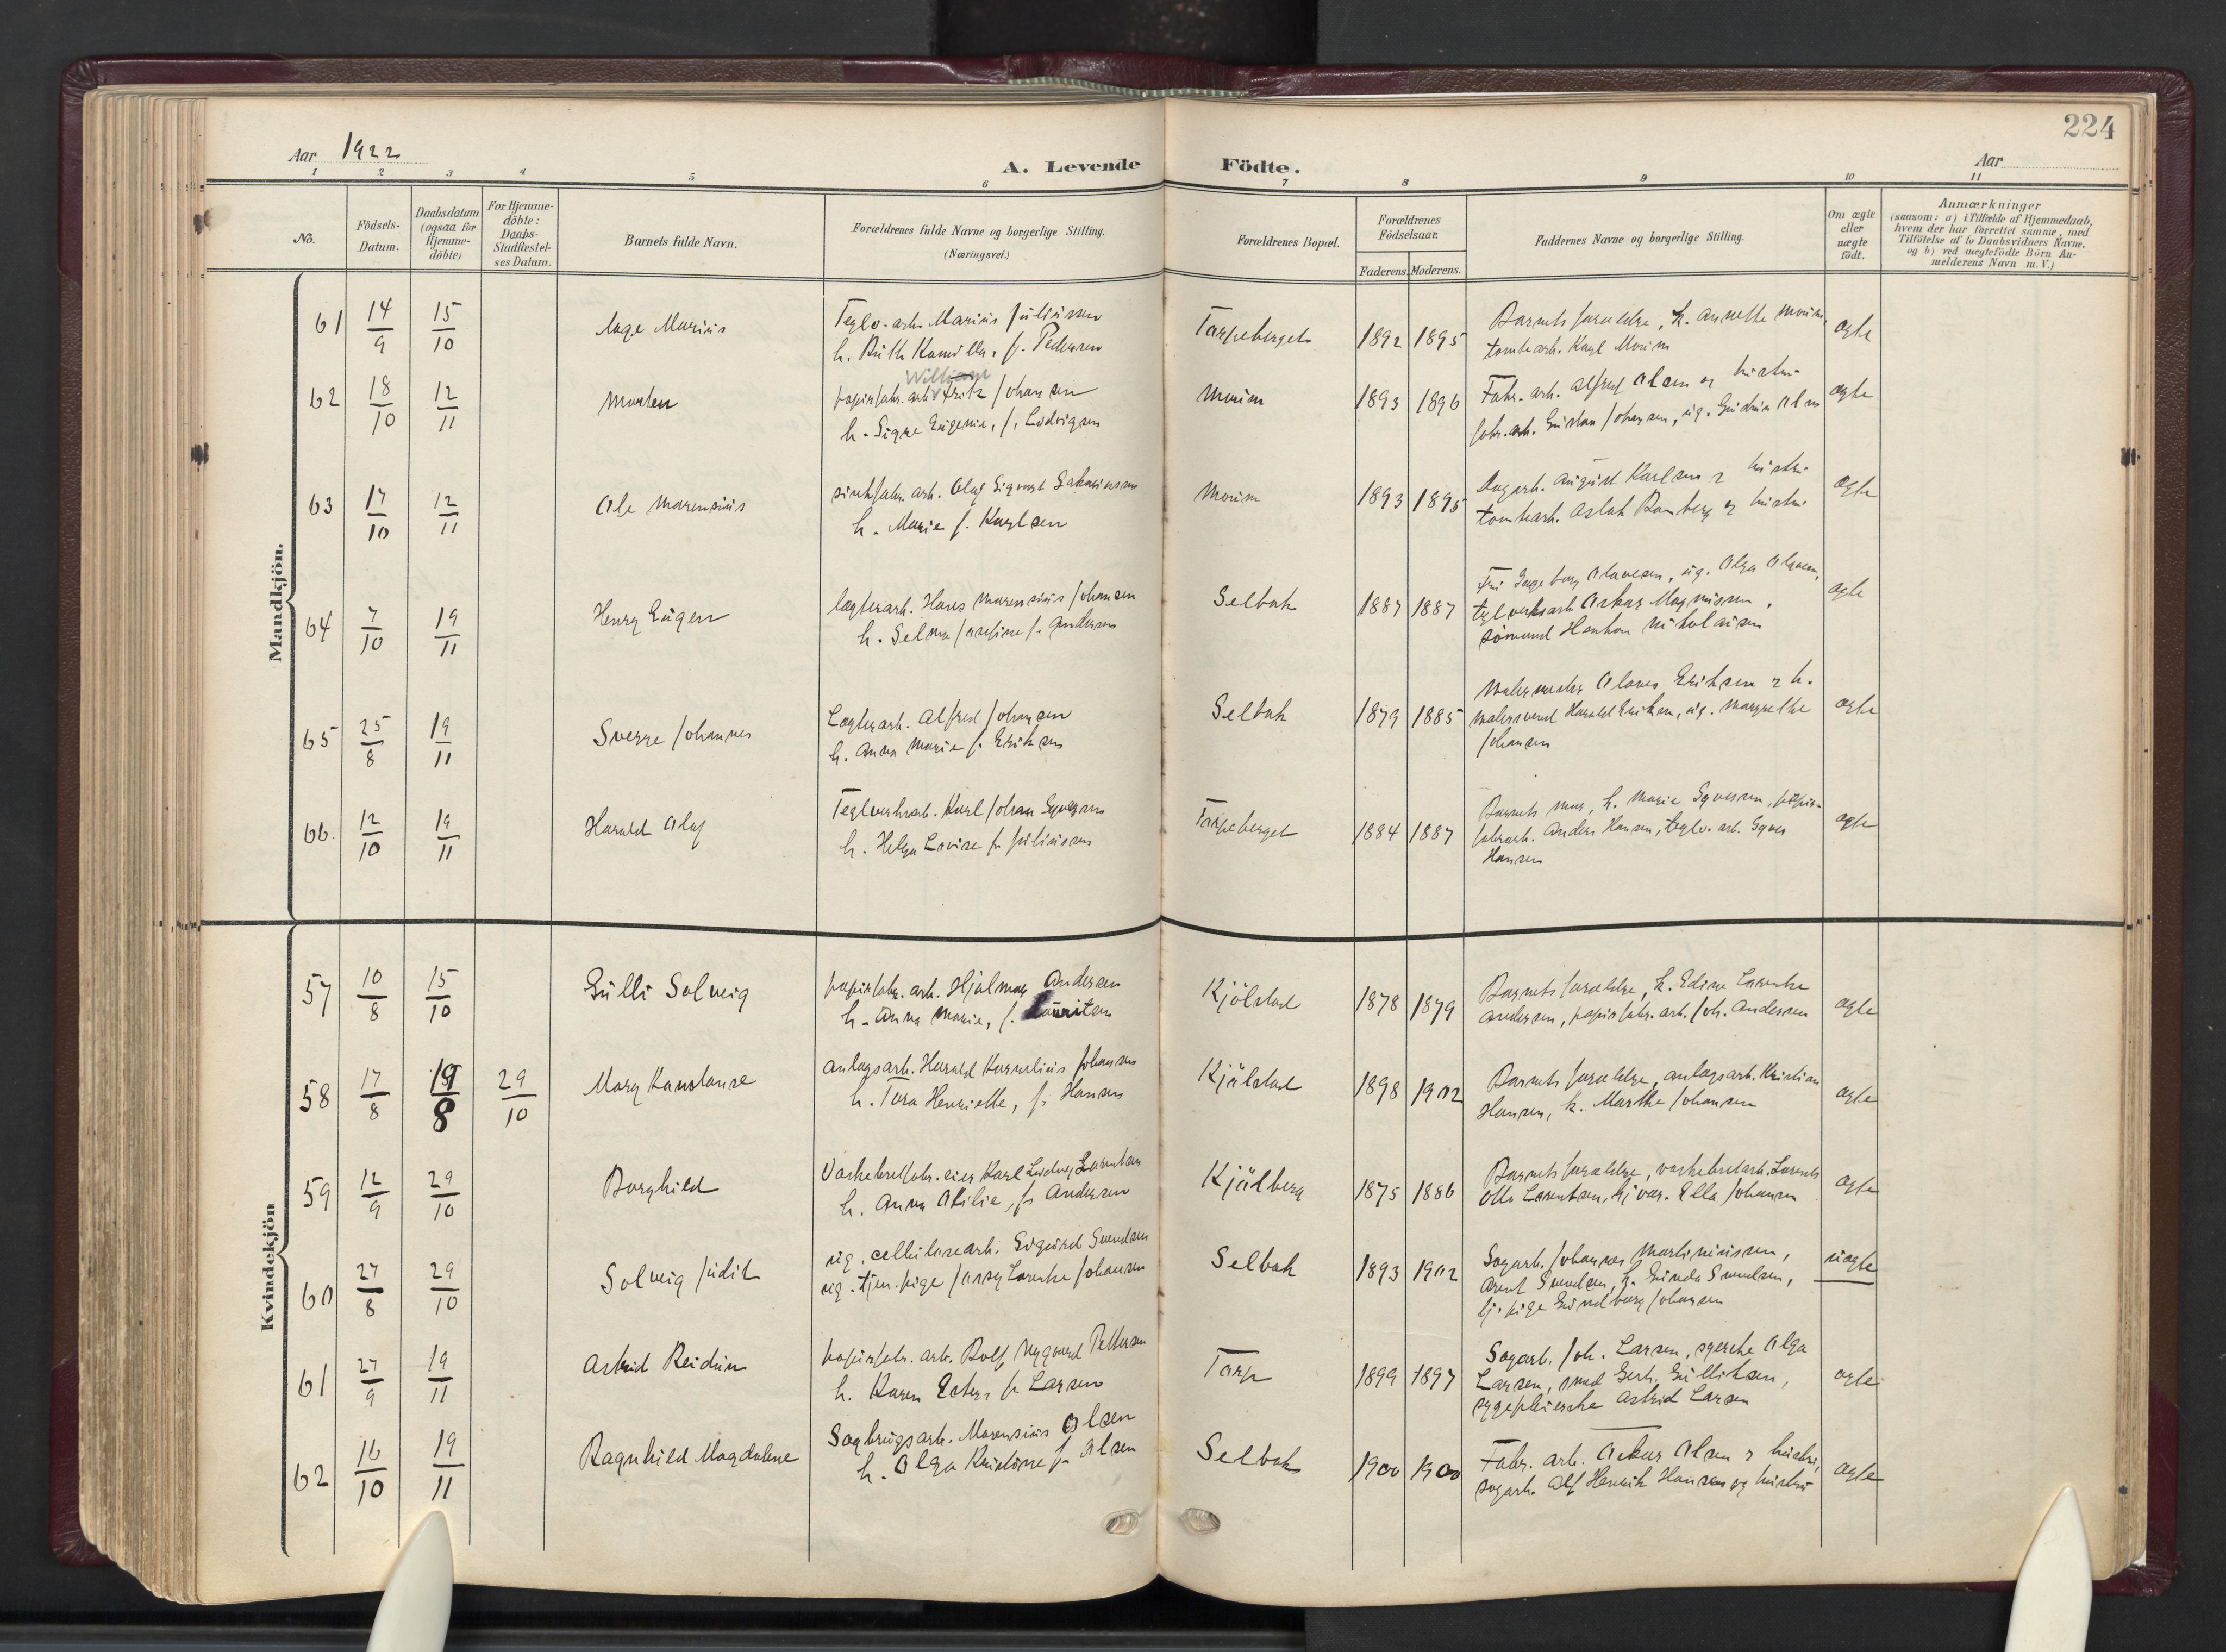 224
Aar 1922
A. Levende Födte.
Aar
1 2 3 4 5 6 7 8 9 10 11
No.
Födsels-Datum.
Daabsdatum (ogsaa for Hjemme-döbte)
For Hjemme-döbte: Daabs-Stadfæstel-ses Datum.
Barnets fulde Navn.
Forældrenes fulde Navne og borgerlige Stilling.
(Næringsvei.)
Forældrenes Bopæl.
Forældrenes Födselsaar.
Faderens. Moderens.
Faddernes Navne og borgerlige Stilling.
Om ægte eller uægte födt.
Anmærkninger
(saasom: a) i Tilfælde af Hjemmedaab,
hvem der har forrettet samme, med
Tilföielse af to Daabsvidners Navne.
og b) ved uægtefödte Börn An-
melderens Navn m. V.)
Mandkjön.
61 14/9 15/10 Aage Marius
Teglv. arb. Marius Juliussen
h. Ruth Kamilla, f. Pedersen
Tarpeberget 1892 1895
Barnets forældre, h. Annette Moum,
tomtearb. Karl Moum
ægte
62 18/10 12/11 Morten
William
papirfabr. arb. Fritz Johansen
h. Signe Eugenie, f. Ludvigsen
Moum 1893 1896
Fabr. arb. Alfred Olsen og hustru
fabr. arb. Gustav Johansen, ug. Gudrun Olsen
ægte
63 17/10 12/11 Ole Marensius
sinkfabr. arb. Olaf Sigvart Sakariassen
h. Marie f. Karlsen
Moum 1893 1895
Dagarb. August Karlsen & hustru
tomtearb. Aslak Ramberg og hustru
ægte
64 7/10 19/11 Henry Eugen
lægterarb. Hans Marensius Johansen
h. Selma Josefine f. Andersen
Selbak 1887 1887
Fru Ingeborg Olavesen, ug. Olga Olavesen,
teglverksarb. Oskar Magnussen,
sömand Haakon Nikolaisen
ægte
65 25/8 19/11 Sverre Johannes
Lægterarb. Alfred Johansen
h. Anna Marie f. Eriksen
Selbak 1879 1885
Malermester Olaves Eriksen & h.
malersvend Harald Eriksen, ug. Margrethe
Johansen
ægte
66. 12/10 19/11 Harald Olaf
Teglverksarb. Karl Johan Syversen
h. Helga Lovise f. Juliussen
Tarpeberget 1884 1887
Barnets mor, h. Marie Syversen, papir-
fabrarb. Anders Hansen, teglv. arb. Syver
Hansen
ægte
Kvindekjön
57 10/8 15/10 Gulli Solveig
papirfabr. arb. Hjalmar Andersen
h. Anna Marie, f. Lauritsen
Kjölstad 1878 1879
Barnets forældre, h. Edine Lovise
Andersen, papirfabr. arb. Joh. Andersen
ægte
58 17/8 19/8 29/10 Mary Konstanse
anlagsarb. Harald Kornelius Johansen
h. Tora Henriette, f. Hansen
Kjölstad 1898 1902
Barnets forældre, anlagsarb. Kristian
Hansen, h. Marthe Johansen
ægte
59 12/9 29/10 Borghild
Vaskebretfabr. eier Karl Ludvig Lorentsen
h. Anna Otilie, f. Andersen
Kjölberg 1875 1886
Barnets forældre, vaskebretarb. Lorents
Otto Lorentsen, Ella Johansen
ægte
60 27/8 29/10 Solveig Judit
ug. cellulosearb. Sigurd Svendsen
ug. tjen. pige Jenny Lovise Johansen
Selbak 1893 1902
Sagarb. Johannes Martiniussen,
Arent Svendsen, h. Gunda Svendsen,
tj. pige Gundborg Johansen
uægte
61 27/9 19/11 Astrid Reidun
papirfabr. arb. Rolf Nygaard Pettersen
h. Karen Ester f. Larsen
Tarp 1899 1897
Sagarb. Joh. Larsen, syerske Olga
Larsen, smed Gerh. Gulliksen,
sygepleierske Astrid Larsen
ægte
62 16/10 19/11 Ragnhild Magdalene
Sagbrugsarb. Marensius Olsen
h. Olga Kristine f. Olsen
Selbak 1900 1900
Fabr. arb. Oskar Olsen & hustru,
sagarb. Alf Henrik Hansen og hustru
ægte